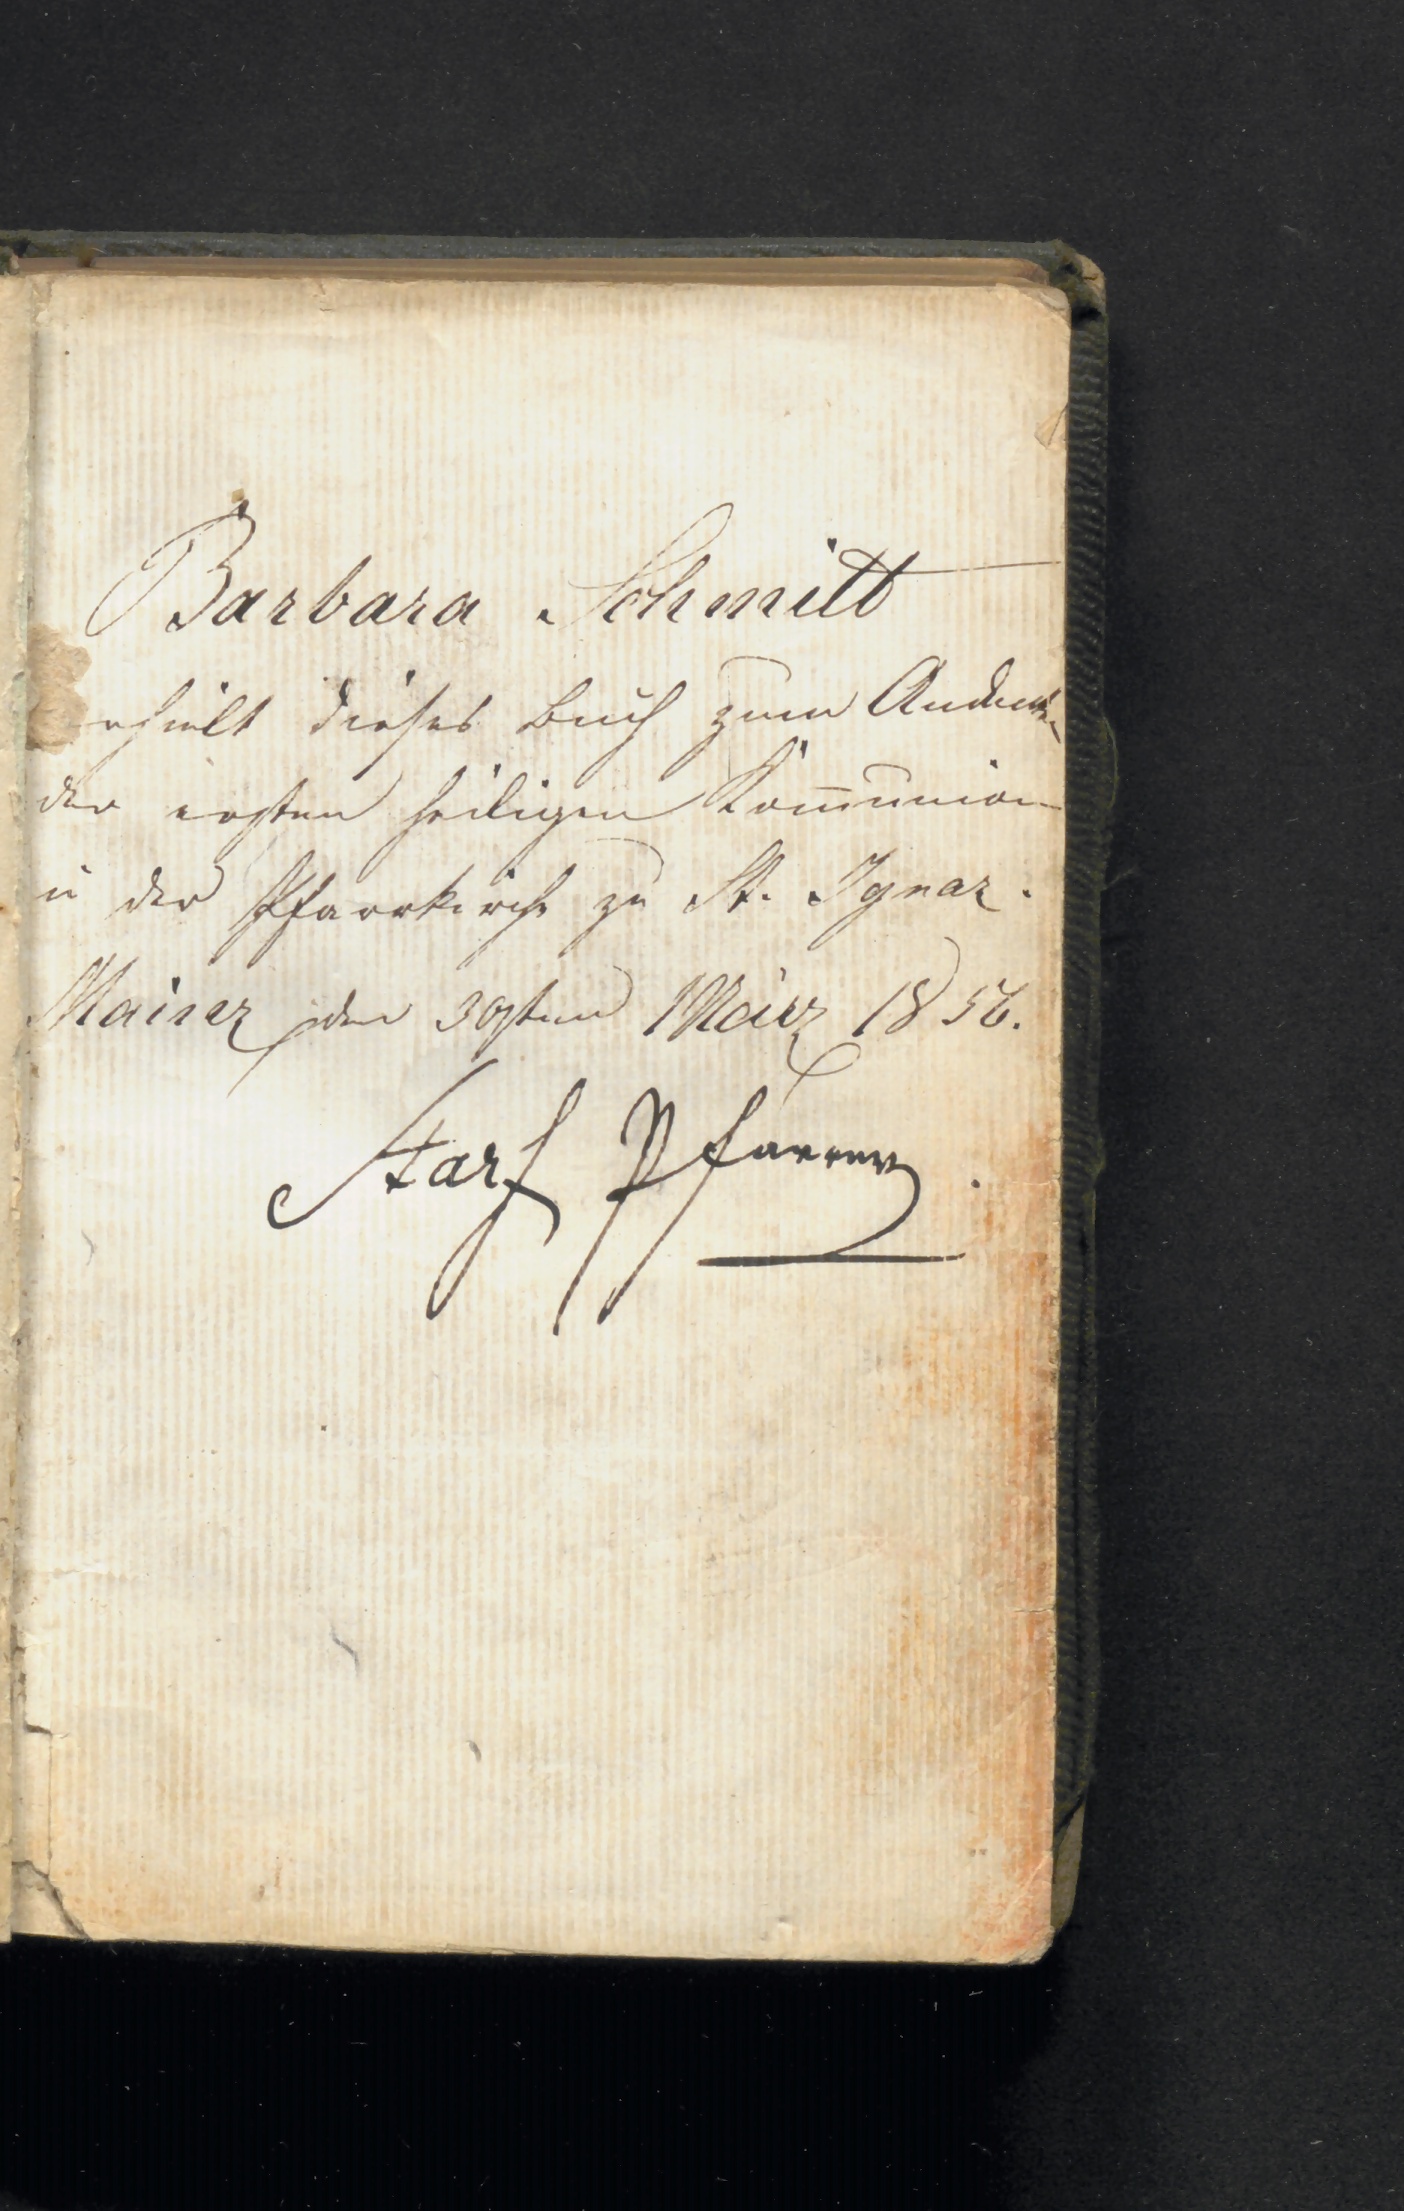 Barbara Schmitt
erhielt dieses Buch zum Andenken
der ersten heiligen Kom̅union
in der Pfarrkirche zu St. Ignaz.
Mainz den 30sten März 1856.
Pfarrer